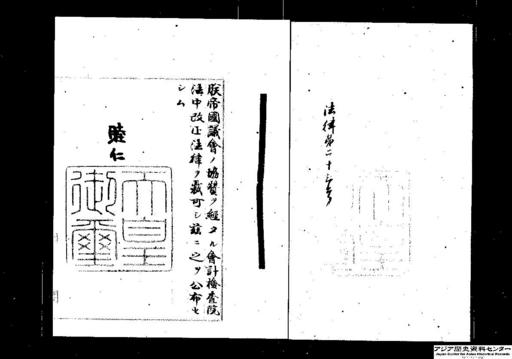 法律第二十三号
朕帝國議會ノ協賛ヲ經タル會計檢査院
法中改正法律ヲ裁可シ茲ニ之ヲ公布セ
シム
睦仁
天皇
御璽
アジア歴史資料センター
Japan Center for Asian Historical Records